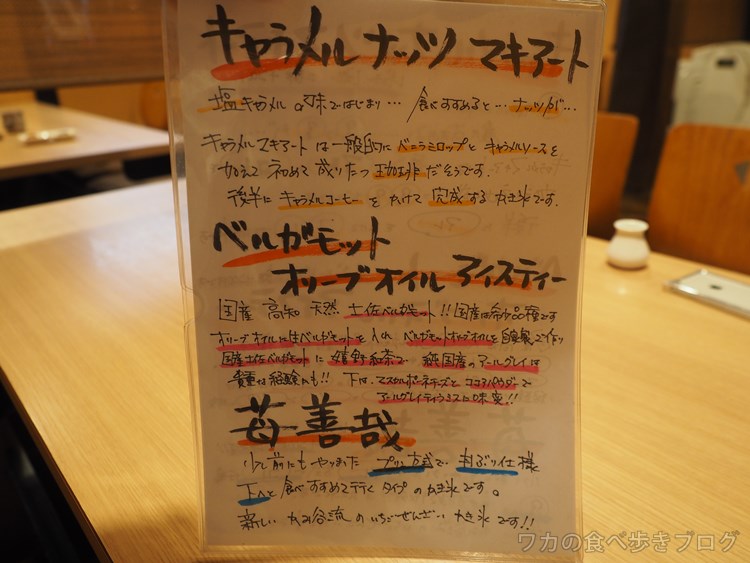 キャラメル ナッツ マキアート
塩キャラメルの味ではじまり… 食べすすめると… ナッツが…
キャラメルマキアートは一般的にバニラシロップとキャラメルソースを
加えて初めて成りたつ珈琲だそうです。
後半にキャラメルコーヒーをかけて完成するかき氷です。
ベルガモット
オリーブオイル アイスティー
国産 高知 天然 土佐ベルガモット!! 国産は希少品種です
オリーブオイルに生ベルガモットを入れ ベルガモットオリーブオイルを自家製で作り
国産土佐ベルガモットに嬉野紅茶で 純国産のアールグレイは
貴重な経験かも!! 下は、マスカルポーネチーズとココアパウダーで
アールグレイティラミスに味変!!
苺善哉
少し前にもやりました プリン方式で 丼ぶり仕様
下へと食べすすめて行くタイプのかき氷です。
新しい かみ谷流のいちごぜんざいかき氷です!!
ワカの食べ歩きブログ